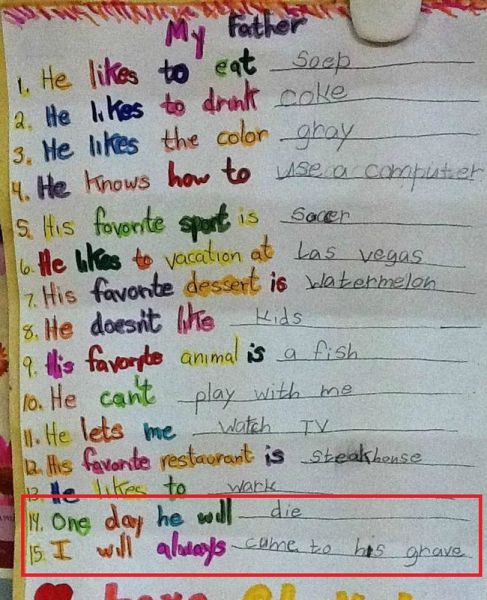 My Father
1. He likes to eat Soep
2. He likes to drink coke
3. He likes the color gray
4. He Knows how to use a computer
5. His favorite sport is Socer
6. He likes to vacation at Las vegas
7. His favorite dessert is Watermelon
8. He doesn't like kids
9. His favorite animal is a fish
10. He can't play with me
11. He lets me watch TV
12. His favorite restaurant is steakhouse
13. He likes to wark
14. One day he will die
15. I will always came to his grave